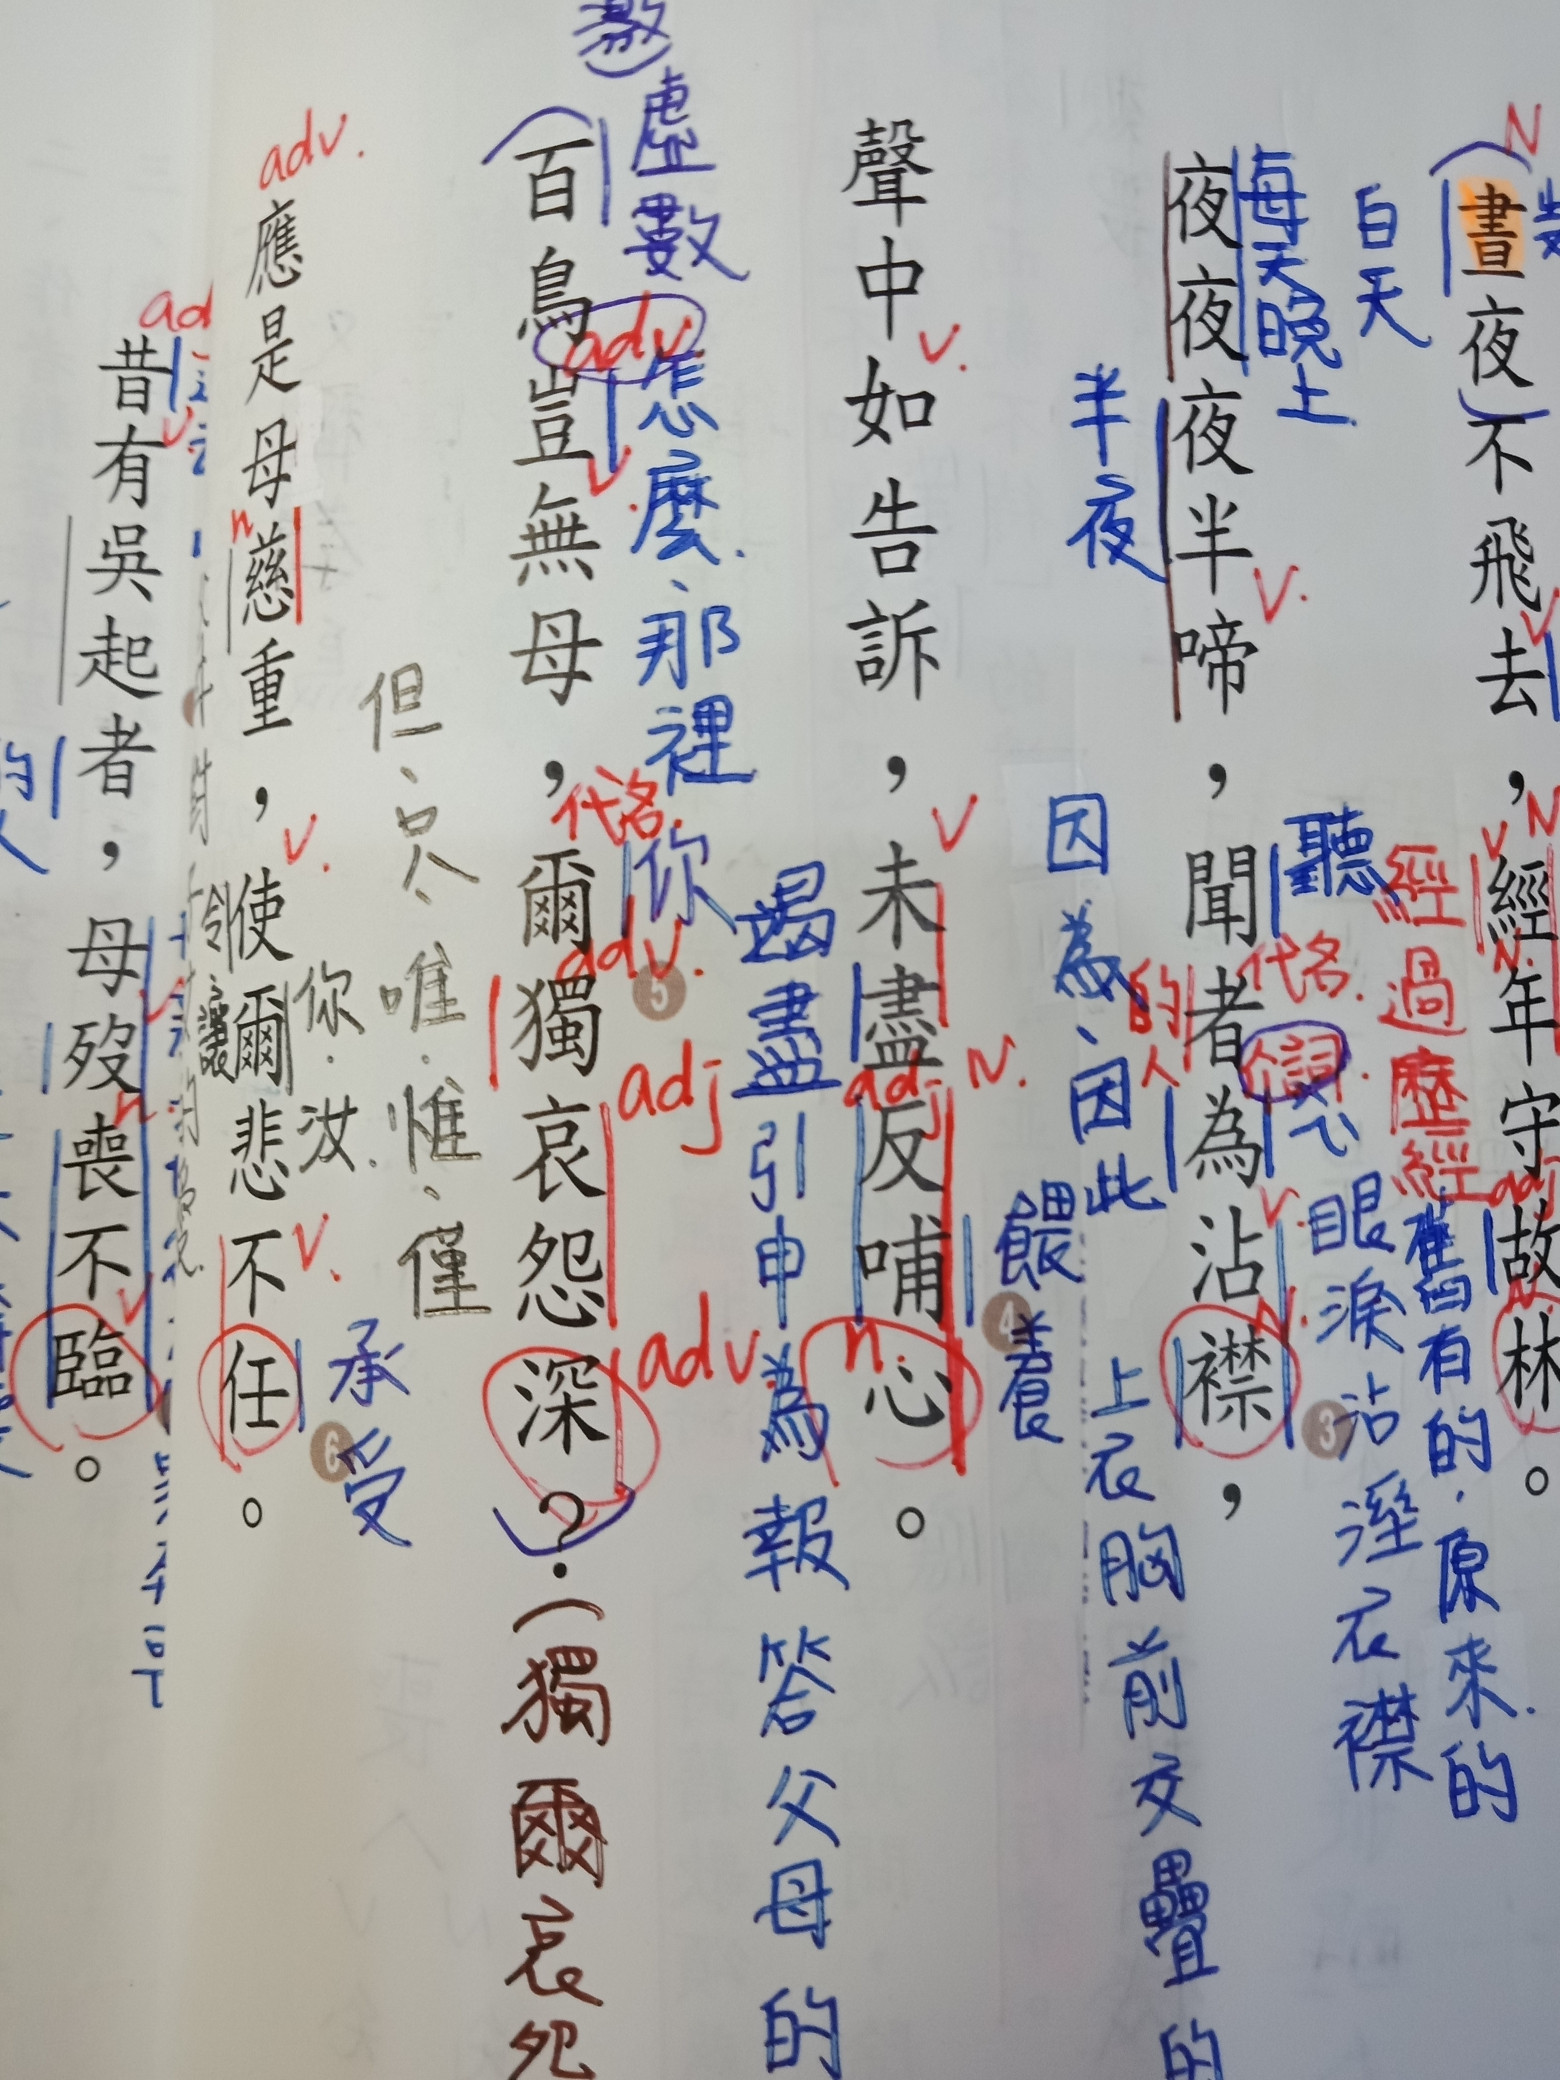 N
晝夜不飛去，經年守故林。
白天
V
V N
N.
adj
N.
經過歷經
舊有的．原來的
夜夜夜半啼，聞者為沾襟，
每天晚上
半夜
V.
聽
代名.
的人
介詞.
V.
N.
因為、因此
眼淚沾溼衣襟
3
上衣胸前交疊的
聲中如告訴，未盡反哺心。
V.
V
adj N.
n.
餵養
4
竭盡引申為報答父母的
(激)
虛數
百鳥豈無母，爾獨哀怨深？(獨爾哀怨
adv
怎麼．那裡
V.
代名.
你
adv.
5
adj
adv
但、只、唯．惟、僅
adv.
應是母慈重，使爾悲不任。
n
V.
令、讓
你．汝．
V.
承受
6
昔有吳起者，母歿喪不臨。
V
V
n
V